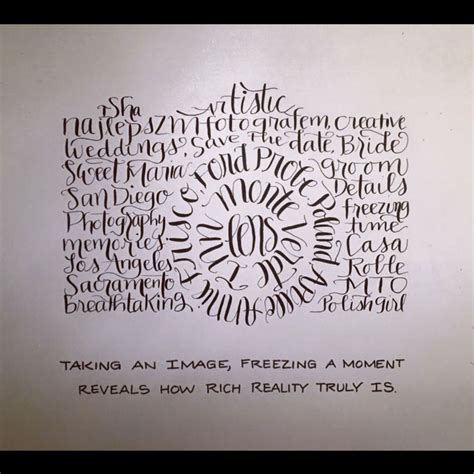 Sha artistic
najlepszm fotografem, creative
weddings, save the date, Bride
Sweet Maria groom
San Diego Details
Photography freezing
memories time
Los Angeles Casa
Sacramento Roble
Breathtaking MTO
Polish girl
Frisco Ford Probe Poland Apolle Anne
monte Verde
lens
TAKING AN IMAGE, FREEZING A MOMENT
REVEALS HOW RICH REALITY TRULY IS.